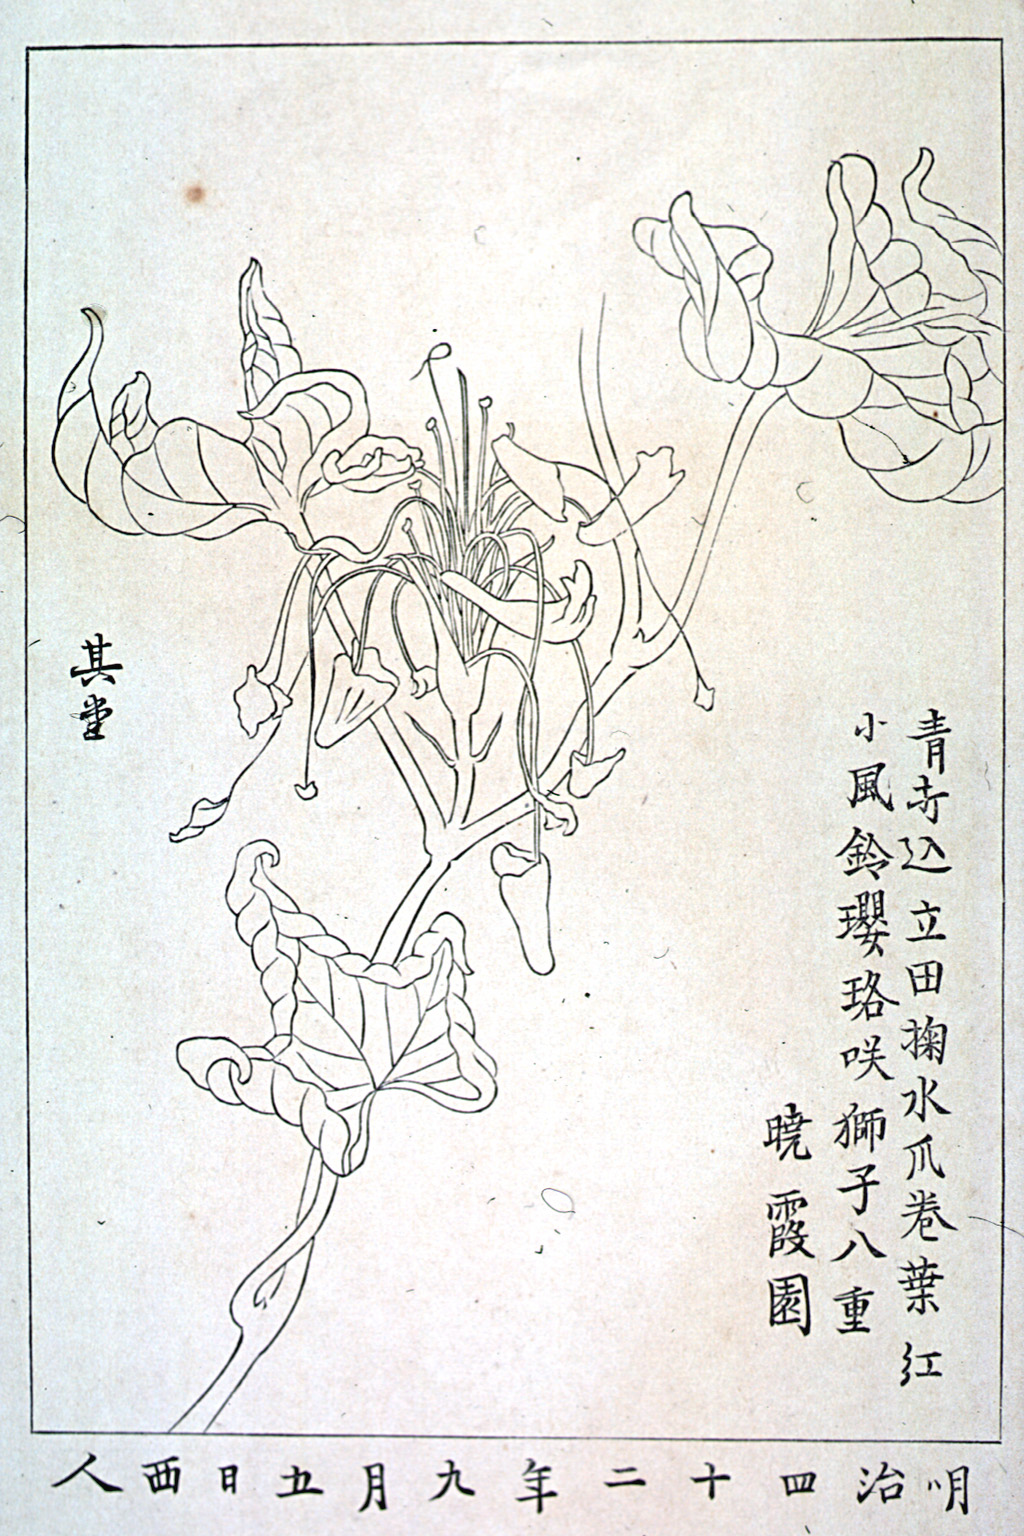 青込立田掬水爪巻葉紅
小風鈴瓔珞咲獅子八重
暁霞園
其堂
明治四十二年九月五日西人